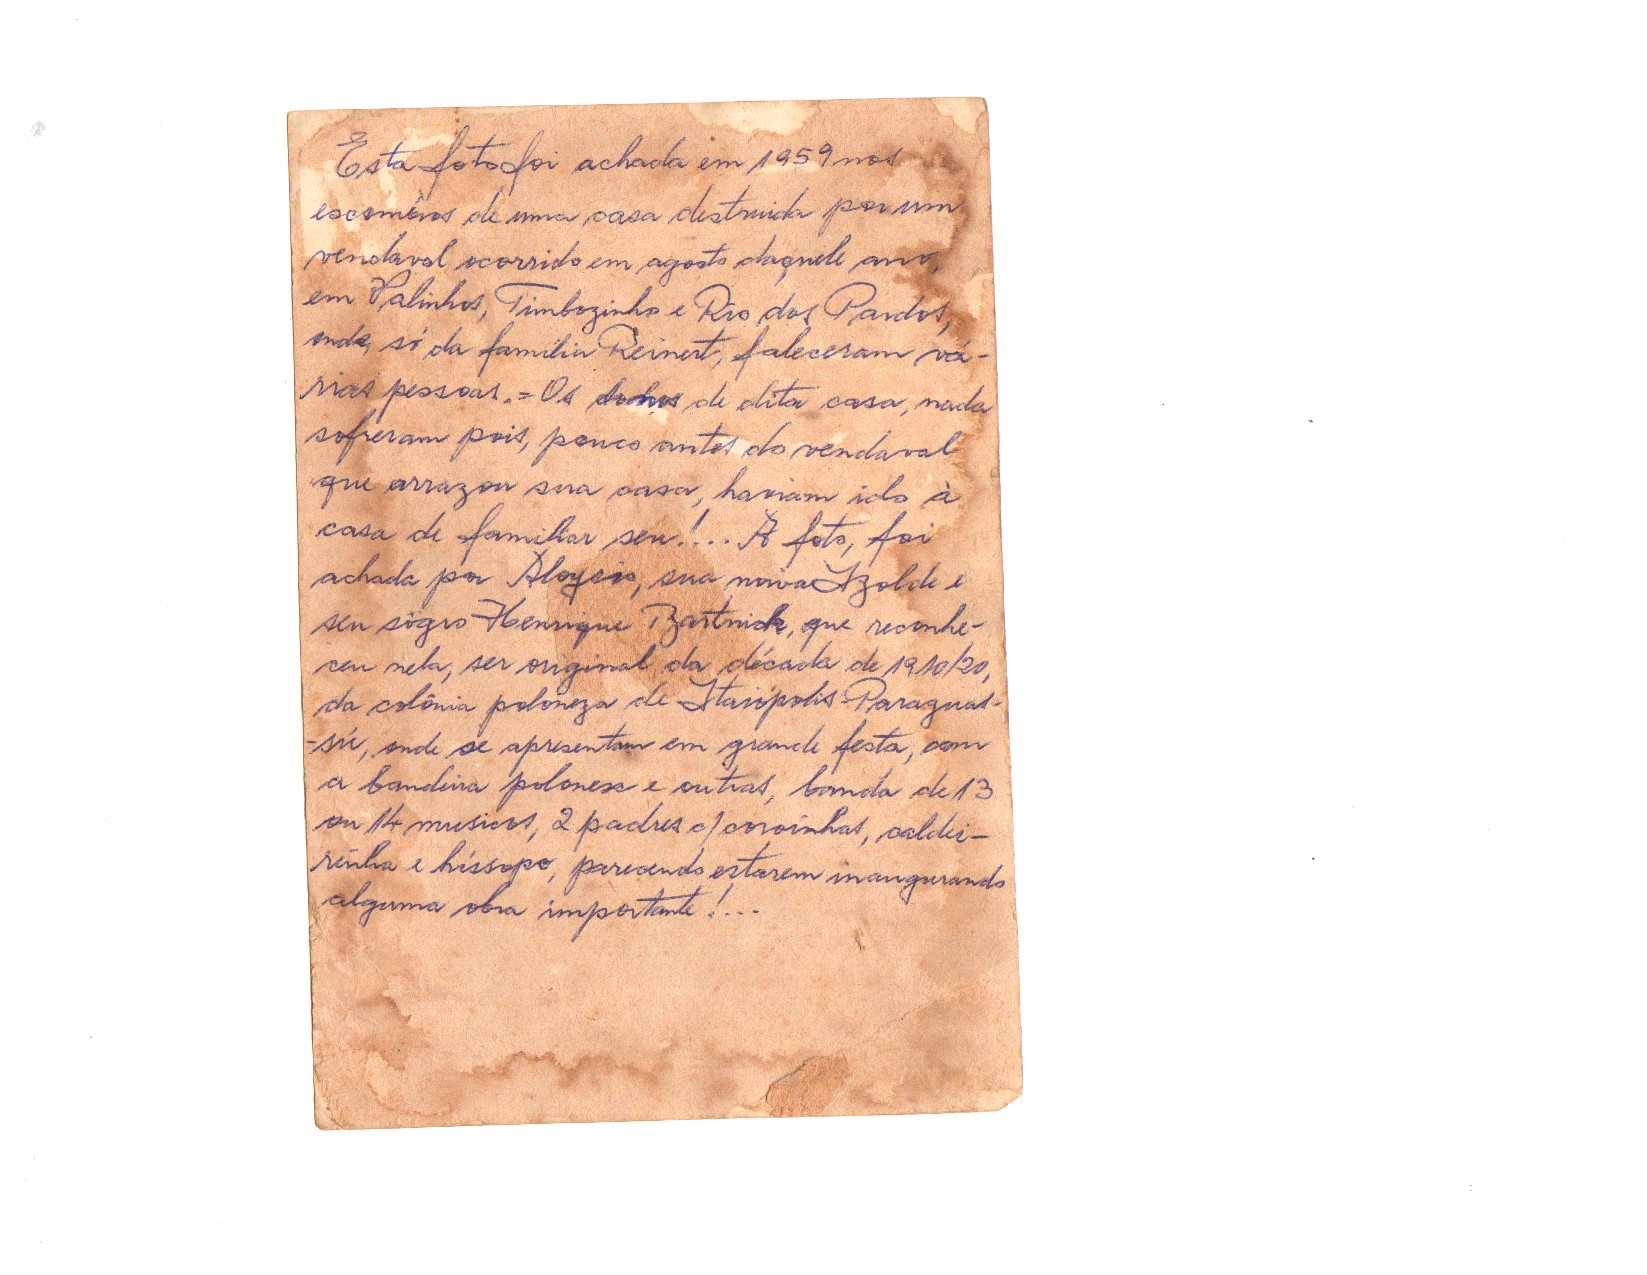 Esta foto foi achada em 1959 nos
escombros de uma casa destruida por um
vendaval ocorrido em agosto daquele ano,
em Valinhos, Timbozinho e Rio dos Pardos,
onde, só da família Reinert, faleceram vá-
rias pessoas.= Os donos de dita casa, nada
sofreram pois, pouco antes do vendaval
que arrazou sua casa, haviam ido à
casa de familiar seu!... A foto, foi
achada por Aloysio, sua noiva Izolde e
seu sogro Henrique Bartnick, que reconhe-
ceu nela, ser original da década de 1910/20,
da colônia poloneza de Itaiópolis-Paraguas-
-sú, onde se apresentam em grande festa, com
a bandeira polonesa e outras, banda de 13
ou 14 musicos, 2 padres c/coroinhas, caldei-
rinha e híssopo, parecendo estarem inaugurando
alguma obra importante!...